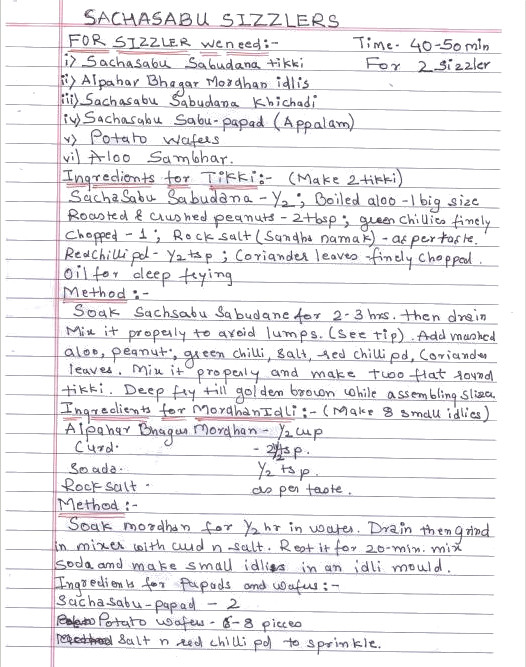 SACHASABU SIZZLERS
FOR SIZZLER we need:- Time- 40-50 min
i) Sachasabu Sabudana tikki For 2 sizzler
ii) Alpahar Bhagar Mordhan idlis
iii) Sachasabu Sabudana Khichadi
iv) Sachasabu Sabu-papad (Appalam)
v) Potato wafers
vi) Aloo Sambhar.
Ingredients for Tikki:- (Make 2 tikki)
Sachasabu Sabudana - 1/2; Boiled aloo - 1 big size
Roasted & crushed peanuts - 2 tbsp; green chillies finely
Chopped - 1; Rock salt (Sandha namak) - as per taste.
Red chilli pd - 1/2 tsp; Coriander leaves - finely chopped.
Oil for deep frying
Method:-
Soak Sachsabu Sabudane for 2-3 hrs. then drain
Mix it properly to avoid lumps. (See tip). Add mashed
aloo, peanut, green chilli, salt, red chilli pd, Coriander
leaves. Mix it properly and make two flat round
tikki. Deep fry till golden brown while assembling
Ingredients for Mordhan Idli:- (Make 8 small idlies)
Alpahar Bhagar Mordhan - 1/2 cup
Curd. - tsp.
Soada. 1/2 tsp.
Rock salt - as per taste.
Method:-
Soak mordhan for 1/2 hr in water. Drain then grind
in mixer with curd n salt. Rest it for 20-min. mix
soda and make small idlies in an idli mould.
Ingredients for Papads and wafers:-
Sachasabu-papad - 2
Potato wafers - 6-8 pieces
Salt n red chilli pd to sprinkle.